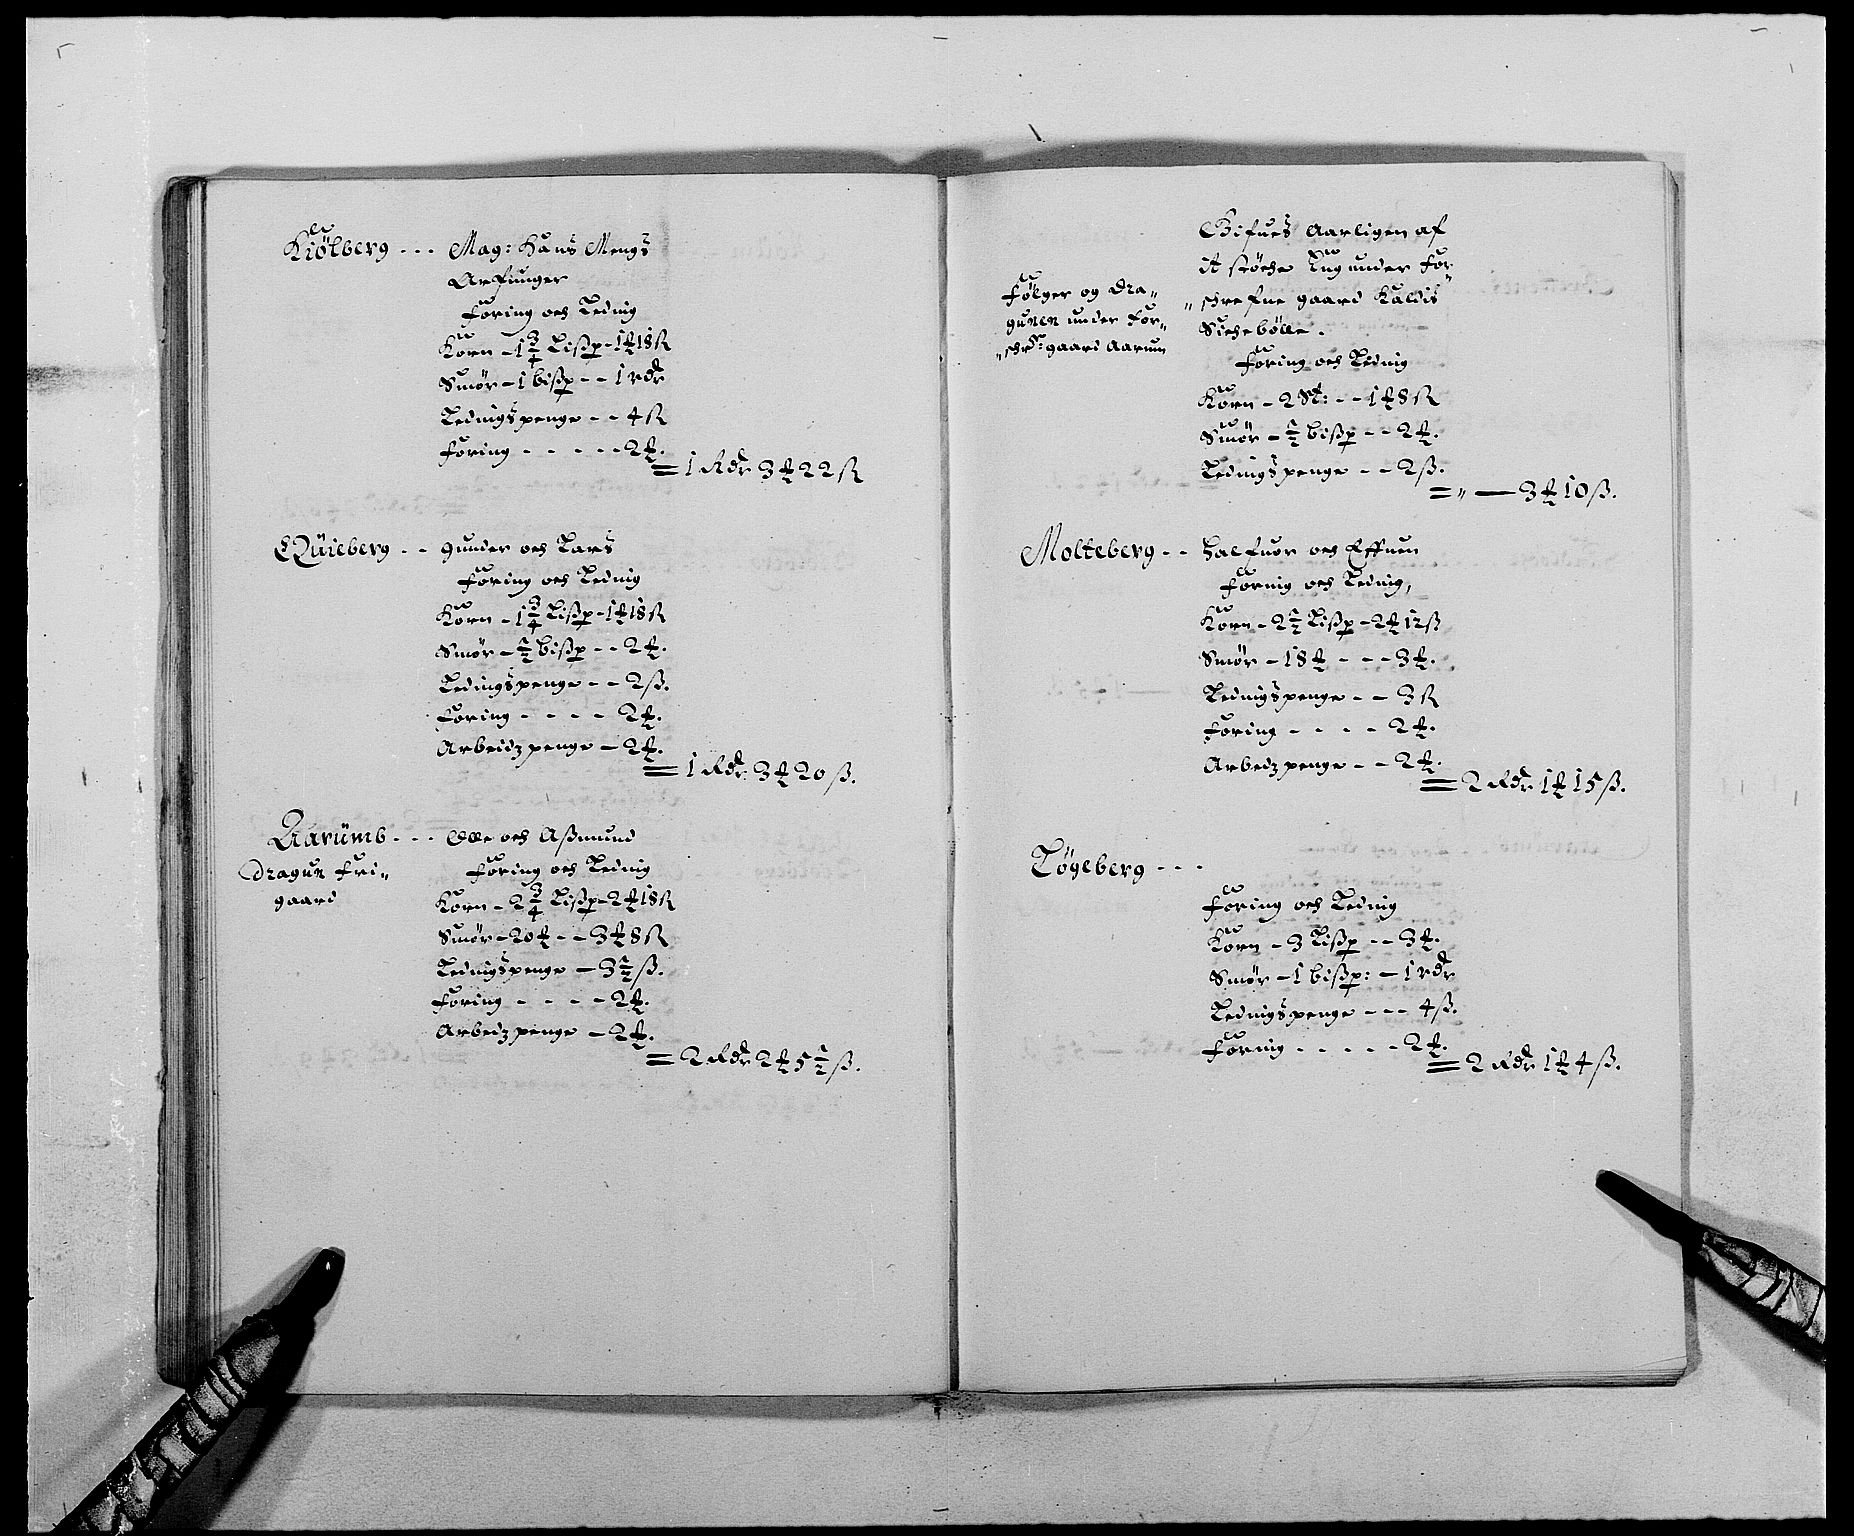 Kiölberg - - - Mag: Hans Mengs
Arfuinger
Foring och Leding
Korn - 1 3/4 Lißp - 1 ℔ 18 ß
Smør - 1 bißp - - 1 rdr
Ledingspenge - - 4 ß
Foring - - - - - 2 ℔.
= 1 Rdr 3 ℔ 22 ß
Qüieberg - - Gunder och Lars
Foring och Leding
Korn - 1 3/4 Lißp - 1 ℔ 18 ß
Smør - 1/2 bißp - - 2 ℔.
Ledingspenge - - 2 ß.
Foring - - - - 2 ℔.
Arbeidzpenge - 2 ℔.
= 1 Rdr 3 ℔ 20 ß.
Aarümb - - - Olle och Aßmund
Dragun fri„
gaard
Foring och Leding
Korn - 2 3/4 Lißp - 2 ℔ 18 ß
Smør - 20 ℔ - - 3 ℔ 8 ß
Ledingspenge - 3 1/2 ß.
Foring - - - - 2 ℔.
Arbeidzpenge - 2 ℔.
= 2 Rdr 2 ℔ 5 1/2 ß.
Følger og Dra„
gunen under for„
„schr: gaard Aarum
Gifues Aarligen af
it støche Eng under for„
„schrefne gaard kaldis
Siehebölle.
Foring och Leding
Korn - 2 St: - - 1 ℔ 8 ß
Smør - 1/2 bißp - - 2 ℔.
Ledingspenge - - 2 ß.
= „ — 3 ℔ 10 ß.
Molteberg - - Halfuor och Effuen
Foring och Leding,
Korn - 2 1/2 Lißp - 2 ℔ 12 ß
Smør - 18 ℔ - - - 3 ℔.
Ledingspenge - - 3 ß
Foring - - - - 2 ℔.
Arbeidzpenge - - 2 ℔.
= 2 Rdr 1 ℔ 15 ß.
Tögeberg - - -
Foring och Leding
Korn - 3 Lißp - - 3 ℔.
Smør - 1 bißp: - 1 rdr
Ledingspenge - - - 4 ß.
Foring - - - - - 2 ℔.
= 2 Rdr 1 ℔ 4 ß.